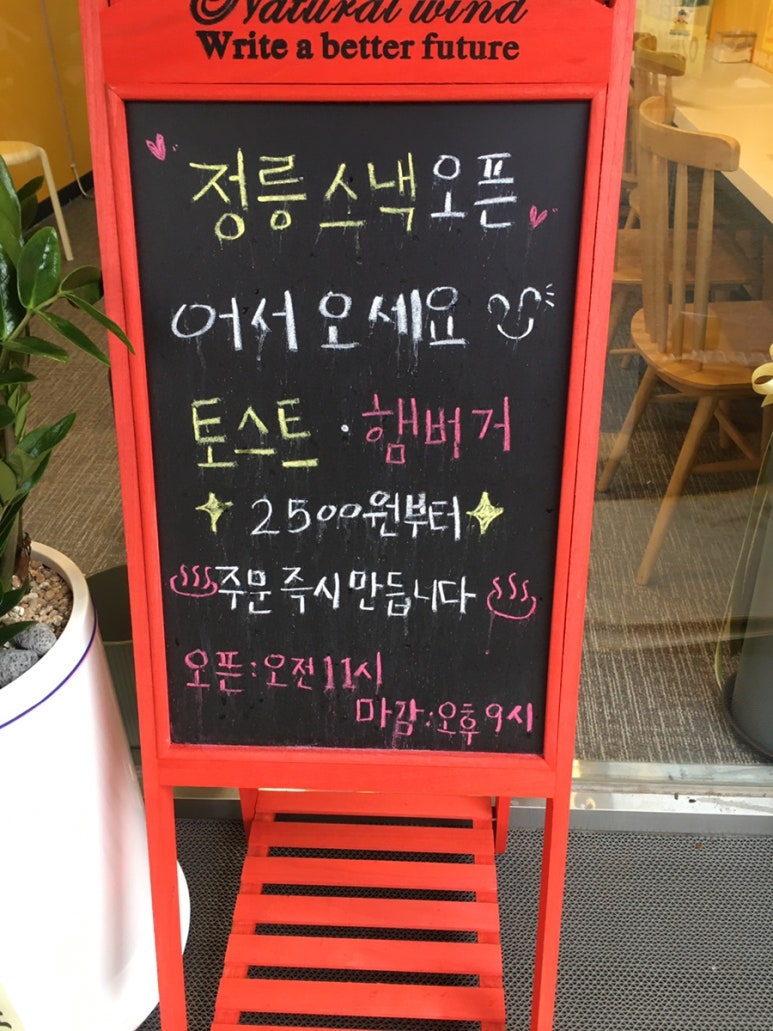 Natural wind
Write a better future
정릉 스낵 오픈
어서 오세요
토스트 · 햄버거
2500원부터
주문 즉시 만듭니다
오픈 : 오전 11시
마감 : 오후 9시